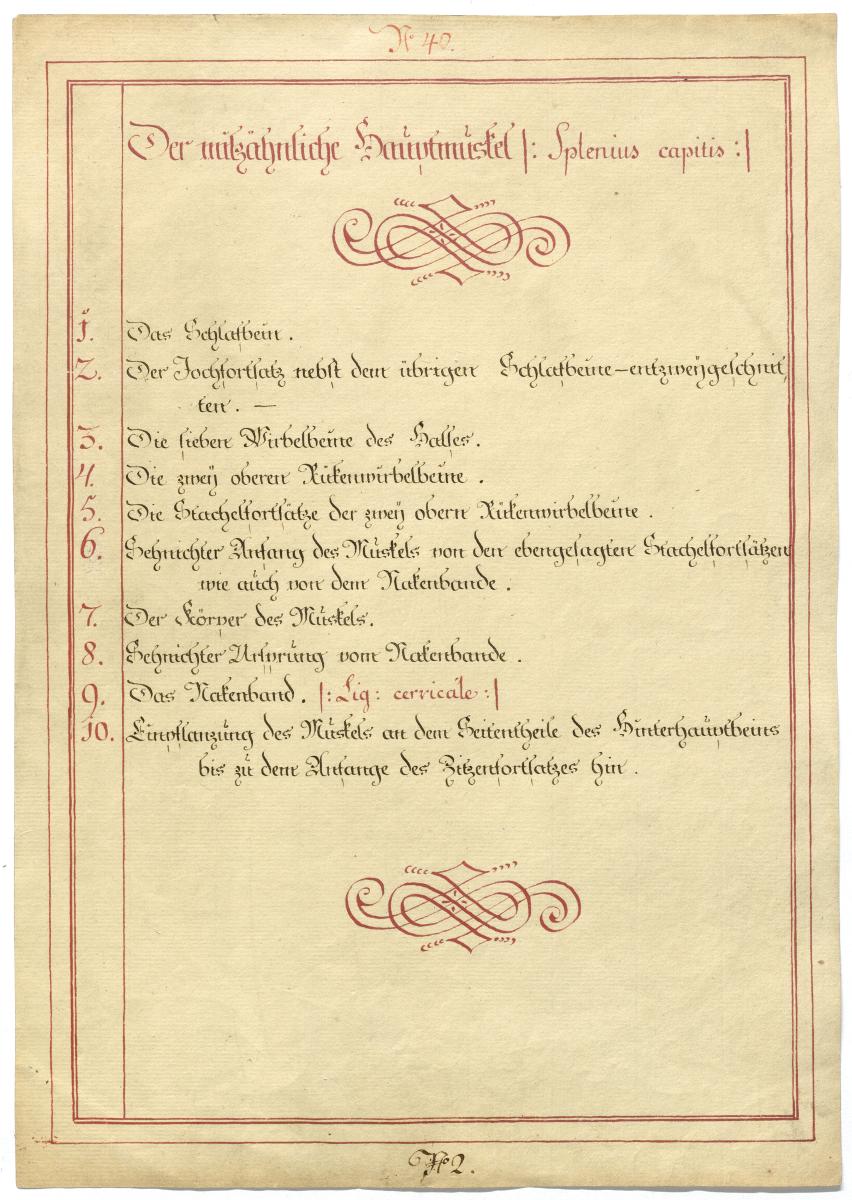 No 40.
Der milzähnliche Hauptmuskel |: Splenius capitis :|
1. Das Schlafbein.
2. Der Jochfortsatz nebst dem übrigen Schlafbeine-entzweÿgeschnit,
ten. —
3. Die sieben Wirbelbeine des Halses.
4. Die zweÿ oberen Rükenwirbelbeine.
5. Die Stachelfortsätze der zweÿ obern Rükenwirbelbeine.
6. Sehnichter Anfang des Muskels von den ebengesagten Stachelfortsätzen
wie auch von dem Nakenbande.
7. Der Körper des Muskels.
8. Sehnichter Ursprung vom Nakenbande.
9. Das Nakenband. |: Lig: cervicale :|
10. Einpflanzung des Muskels an dem Seitentheile des Hinterhauptbeins
bis zu dem Anfange des Zitzenfortsatzes hin.
No 2.